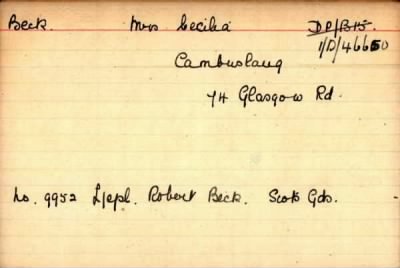 Beck. Mrs Cecilia DP/B15.
1/D/46650
Cambuslang
74 Glasgow Rd.
No. 9952 L/cpl. Robert Beck. Scots Gds.